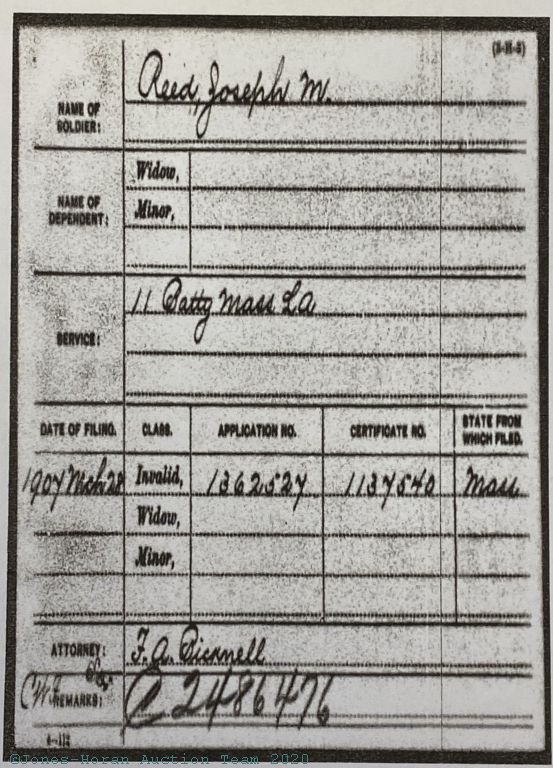 (3-H-3)
NAME OF SOLDIER: Reed, Joseph M.
NAME OF DEPENDENT: Widow,
Minor,
SERVICE: 11 Batty Mass L A
DATE OF FILING. CLASS. APPLICATION NO. CERTIFICATE NO. STATE FROM WHICH FILED.
1907 Mch 28 Invalid, 1362527 1137540 Mass
Widow,
Minor,
ATTORNEY: F. A. Bicknell
REMARKS: C 2486476
©Jones-Horan Auction Team 2020